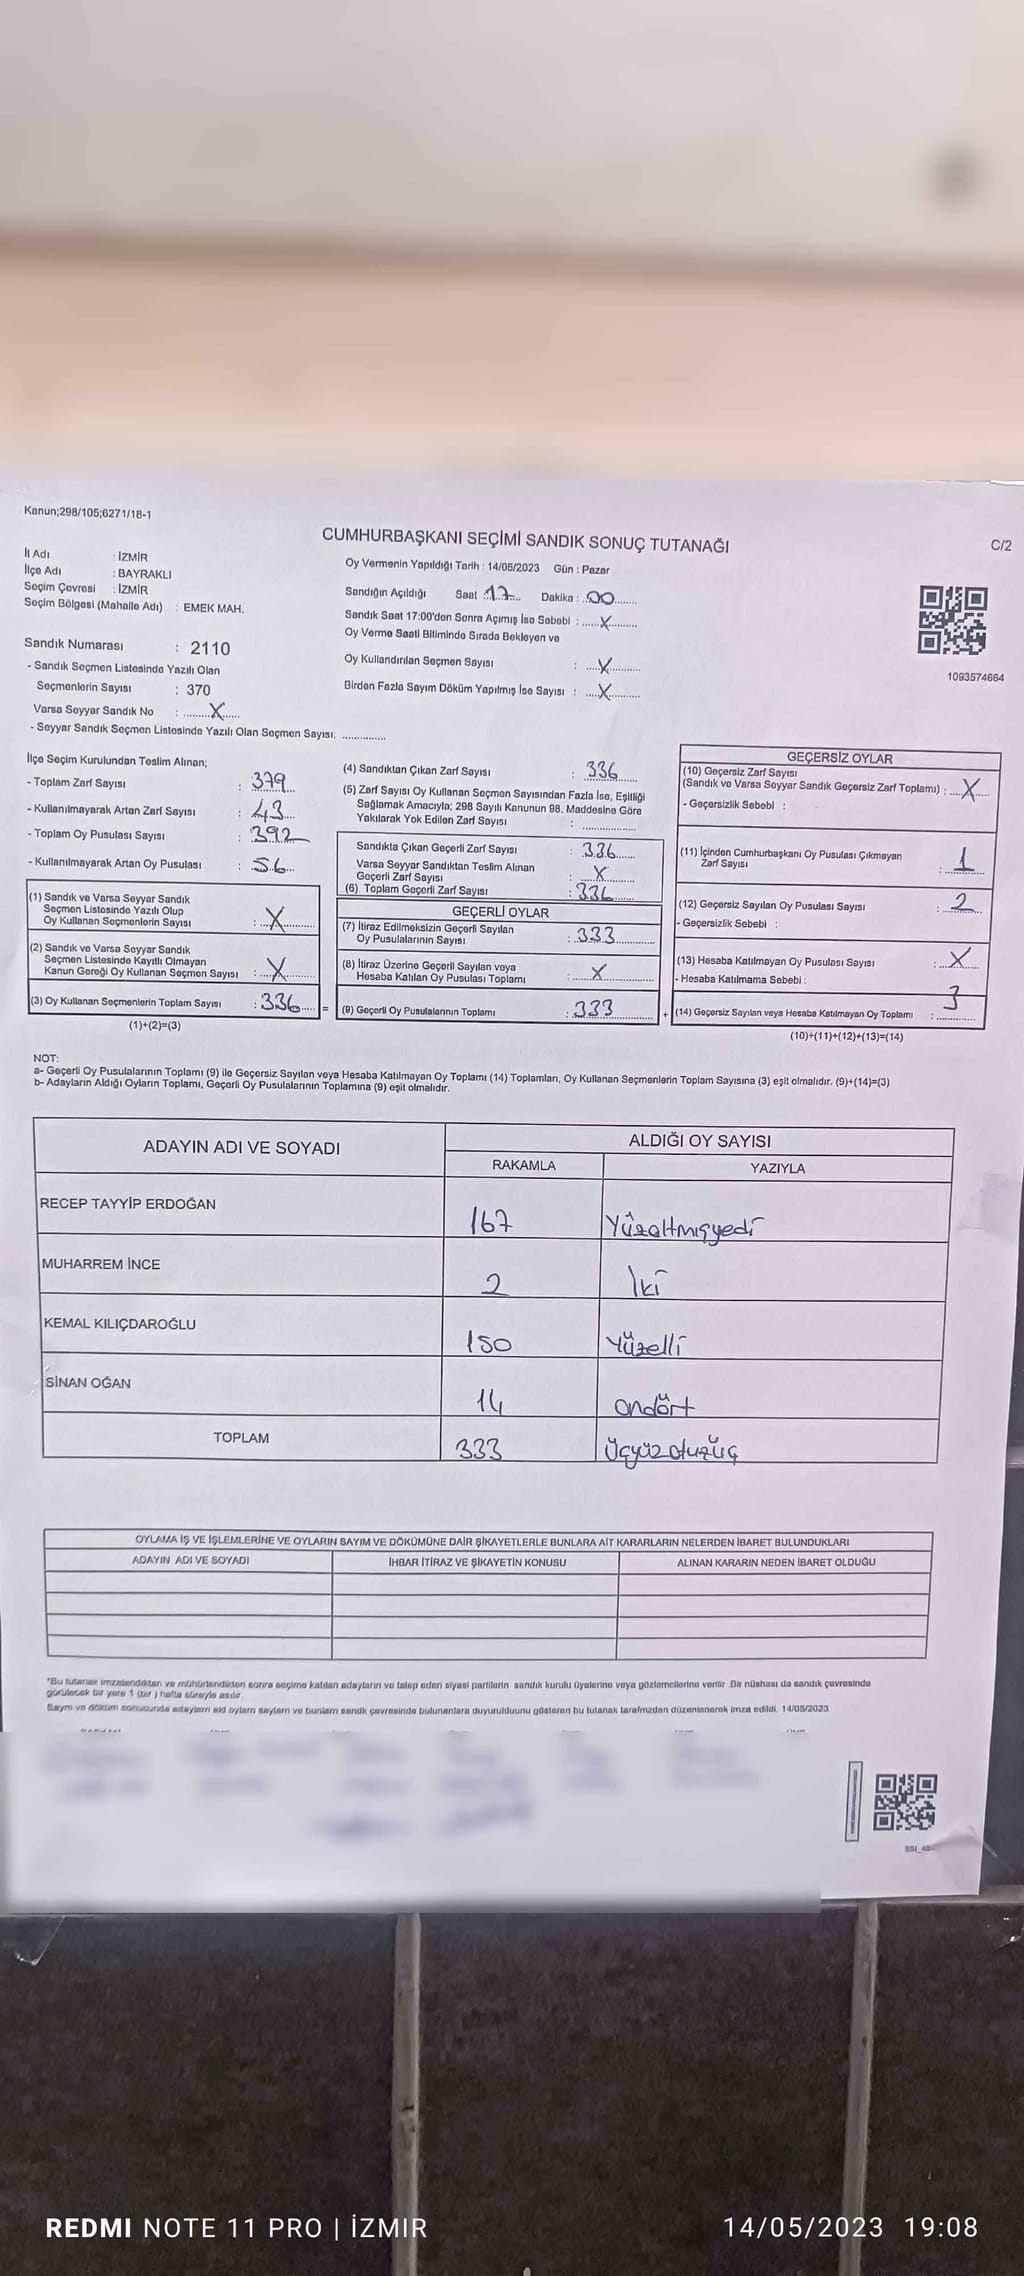 Kanun;298/105;6271/18-1
CUMHURBAŞKANI SEÇİMİ SANDIK SONUÇ TUTANAĞI
C/2
İl Adı : İZMİR
İlçe Adı : BAYRAKLI
Seçim Çevresi : İZMİR
Seçim Bölgesi (Mahalle Adı) : EMEK MAH.
Sandık Numarası : 2110
- Sandık Seçmen Listesinde Yazılı Olan
Seçmenlerin Sayısı : 370
Varsa Seyyar Sandık No : X
- Seyyar Sandık Seçmen Listesinde Yazılı Olan Seçmen Sayısı:
Oy Vermenin Yapıldığı Tarih : 14/05/2023 Gün : Pazar
Sandığın Açıldığı Saat 17 Dakika : 00
Sandık Saat 17:00'den Sonra Açımış İse Sebebi : X
Oy Verme Saati Bitiminde Sırada Bekleyen ve
Oy Kullandırılan Seçmen Sayısı : X
Birden Fazla Sayım Döküm Yapılmış İse Sayısı : X
1093574664
İlçe Seçim Kurulundan Teslim Alınan;
- Toplam Zarf Sayısı : 379
- Kullanılmayarak Artan Zarf Sayısı : 43
- Toplam Oy Pusulası Sayısı : 392
- Kullanılmayarak Artan Oy Pusulası : 56
(1) Sandık ve Varsa Seyyar Sandık
Seçmen Listesinde Yazılı Olup
Oy Kullanan Seçmenlerin Sayısı : X
(2) Sandık ve Varsa Seyyar Sandık
Seçmen Listesinde Kayıtlı Olmayan
Kanun Gereği Oy Kullanan Seçmen Sayısı : X
(3) Oy Kullanan Seçmenlerin Toplam Sayısı : 336 =
(1)+(2)=(3)
(4) Sandıktan Çıkan Zarf Sayısı : 336
(5) Zarf Sayısı Oy Kullanan Seçmen Sayısından Fazla İse, Eşitliği
Sağlamak Amacıyla; 298 Sayılı Kanunun 98. Maddesine Göre
Yakılarak Yok Edilen Zarf Sayısı :
Sandıkta Çıkan Geçerli Zarf Sayısı : 336
Varsa Seyyar Sandıktan Teslim Alınan
Geçerli Zarf Sayısı : X
(6) Toplam Geçerli Zarf Sayısı : 336
GEÇERLİ OYLAR
(7) İtiraz Edilmeksizin Geçerli Sayılan
Oy Pusulalarının Sayısı : 333
(8) İtiraz Üzerine Geçerli Sayılan veya
Hesaba Katılan Oy Pusulası Toplamı : X
(9) Geçerli Oy Pusulalarının Toplamı : 333 +
GEÇERSİZ OYLAR
(10) Geçersiz Zarf Sayısı
(Sandık ve Varsa Seyyar Sandık Geçersiz Zarf Toplamı) : X
- Geçersizlik Sebebi :
(11) İçinden Cumhurbaşkanı Oy Pusulası Çıkmayan
Zarf Sayısı : 1
(12) Geçersiz Sayılan Oy Pusulası Sayısı : 2
- Geçersizlik Sebebi :
(13) Hesaba Katılmayan Oy Pusulası Sayısı : X
- Hesaba Katılmama Sebebi :
(14) Geçersiz Sayılan veya Hesaba Katılmayan Oy Toplamı : 3
(10)+(11)+(12)+(13)=(14)
NOT:
a- Geçerli Oy Pusulalarının Toplamı (9) ile Geçersiz Sayılan veya Hesaba Katılmayan Oy Toplamı (14) Toplamları, Oy Kullanan Seçmenlerin Toplam Sayısına (3) eşit olmalıdır. (9)+(14)=(3)
b- Adayların Aldığı Oyların Toplamı, Geçerli Oy Pusulalarının Toplamına (9) eşit olmalıdır.
ADAYIN ADI VE SOYADI ALDIĞI OY SAYISI
RAKAMLA YAZIYLA
RECEP TAYYİP ERDOĞAN 167 Yüzaltmışyedi
MUHARREM İNCE 2 İki
KEMAL KILIÇDAROĞLU 150 Yüzelli
SİNAN OĞAN 14 ondört
TOPLAM 333 Üçyüzotuzüç
OYLAMA İŞ VE İŞLEMLERİNE VE OYLARIN SAYIM VE DÖKÜMÜNE DAİR ŞİKAYETLERLE BUNLARA AİT KARARLARIN NELERDEN İBARET BULUNDUKLARI
ADAYIN ADI VE SOYADI İHBAR İTİRAZ VE ŞİKAYETİN KONUSU ALINAN KARARIN NEDEN İBARET OLDUĞU
*Bu tutanak imzalandıktan ve mühürlendikten sonra seçime katılan adayların ve talep eden siyasi partilerin sandık kurulu üyelerine veya gözlemcilerine verilir .Bir nüshası da sandık çevresinde
görülecek bir yere 1 (bir ) hafta süreyle asılır.
Sayım ve döküm sonucunda adayların bunların sandık çevresinde bulunanlara duyurulduunu gösteren bu tutanak tarafımızdan düzenlenerek imza edildi. 14/05/2023
REDMI NOTE 11 PRO | İZMIR
14/05/2023 19:08